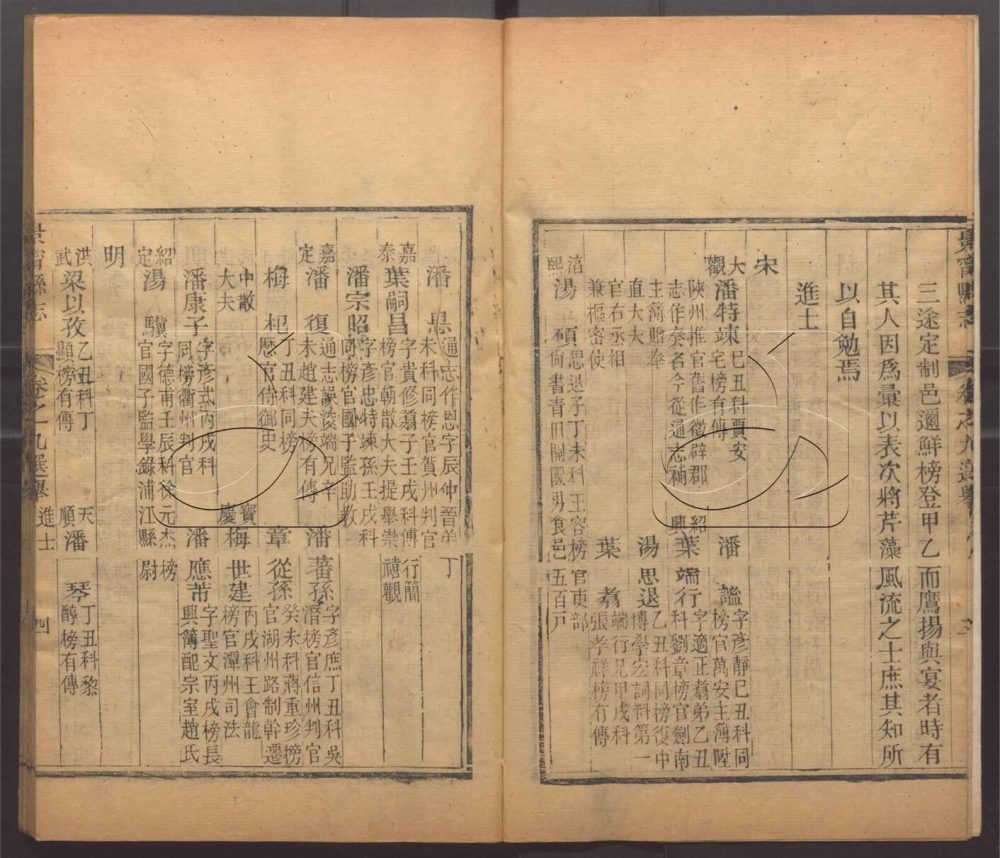 三途定制邑邇鮮榜登甲乙而鷹揚與宴者時有
其人因爲彙以表次將芹藻風流之士庶其知所
以自勉焉
進士
宋
大觀
潘特竦
巳丑科賈安
宅榜有傳
陝州推官舊作徽辟郡
志作奏名今從通志補
潘 謐
字彥靜巳丑科同
榜官萬安主簿陞
主簿贈奉
直大夫
紹興
葉端行
字適正㬙弟乙丑
科劉章榜官劍南
官右丞相
兼樞密使
湯思退
乙丑科同榜復中
博學宏詞科第一
葉 㬙
端行兄甲戌科
張孝祥榜有傳
淳熙
湯 碩
思退子丁未科王容榜官吏部
尚書青田開國男食邑五百戸
景寧縣志
潘 㥶
通志作恩字辰仲晉弟 丁
未科同榜官賀州判官
嘉泰
葉嗣昌
字貴修㬙子壬戌科傅行簡
榜官朝散大夫提舉崇禧觀
潘宗昭
字彥忠特竦孫壬戌科
同榜官國子監助教
嘉定
潘 復
通志誤淩端兄辛
未趙建夫榜有傳
潘蕃孫
字彥庶丁丑科吳
潛榜官信州判官
梅 杞
丁丑科同榜
歴官侍御史
章從孫
癸未科蔣重珍榜
官湖州路制幹遷
中散
大夫
寶慶
梅世建
丙戌科王會龍
榜官潭州司法
潘康子
字彥式丙戌科
同榜衢州判官
潘應芾
字聖文丙戌榜長
興簿配宗室趙氏
紹定
湯 驥
字德甫壬辰科徐元杰榜
官國子監學錄浦江縣尉
明
洪武
梁以孜
乙丑科丁
顯榜有傳
天順
潘 琴
丁丑科黎
醇榜有傳
景寧縣志
卷之九選舉
進士
四